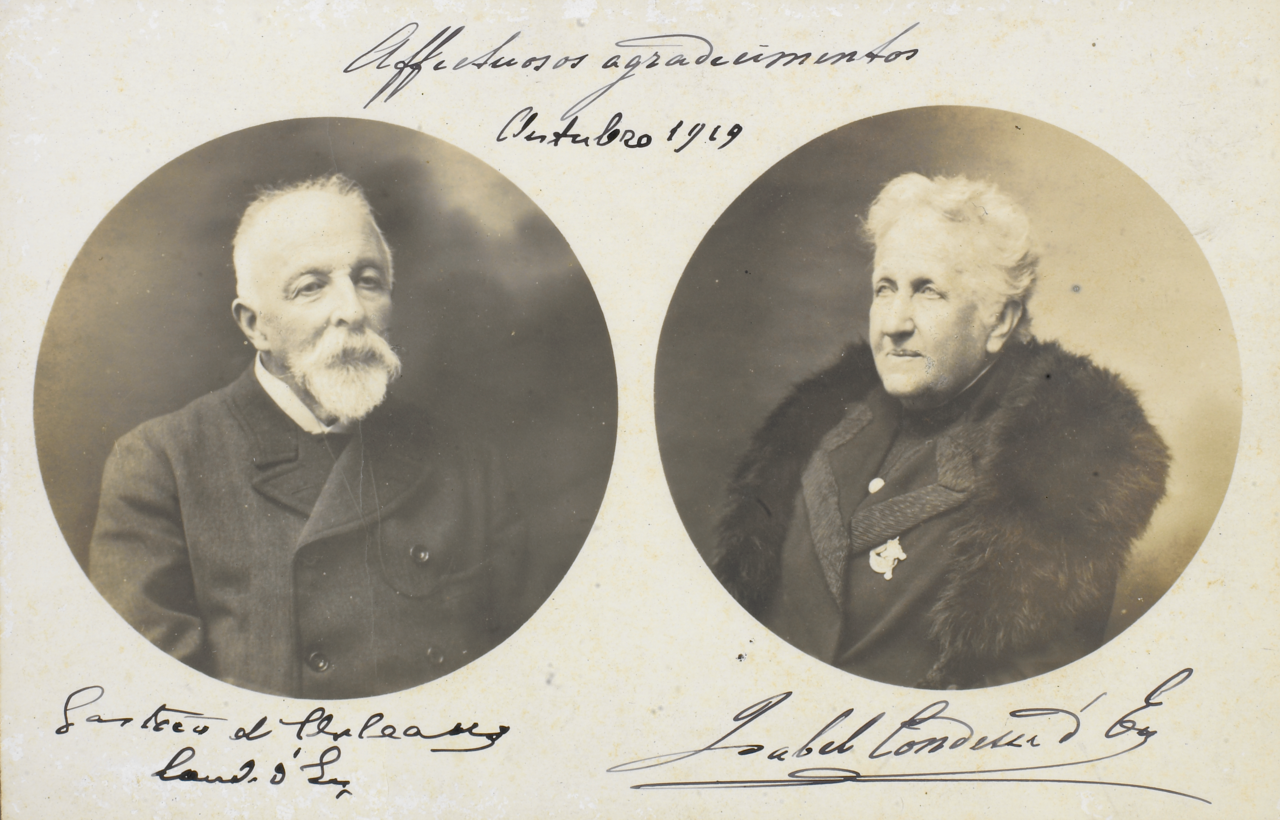 Affectuosos agradecimentos
Outubro 1919
Gastão d'Orleans
Conde d'Eu
Isabel Condessa d'Eu